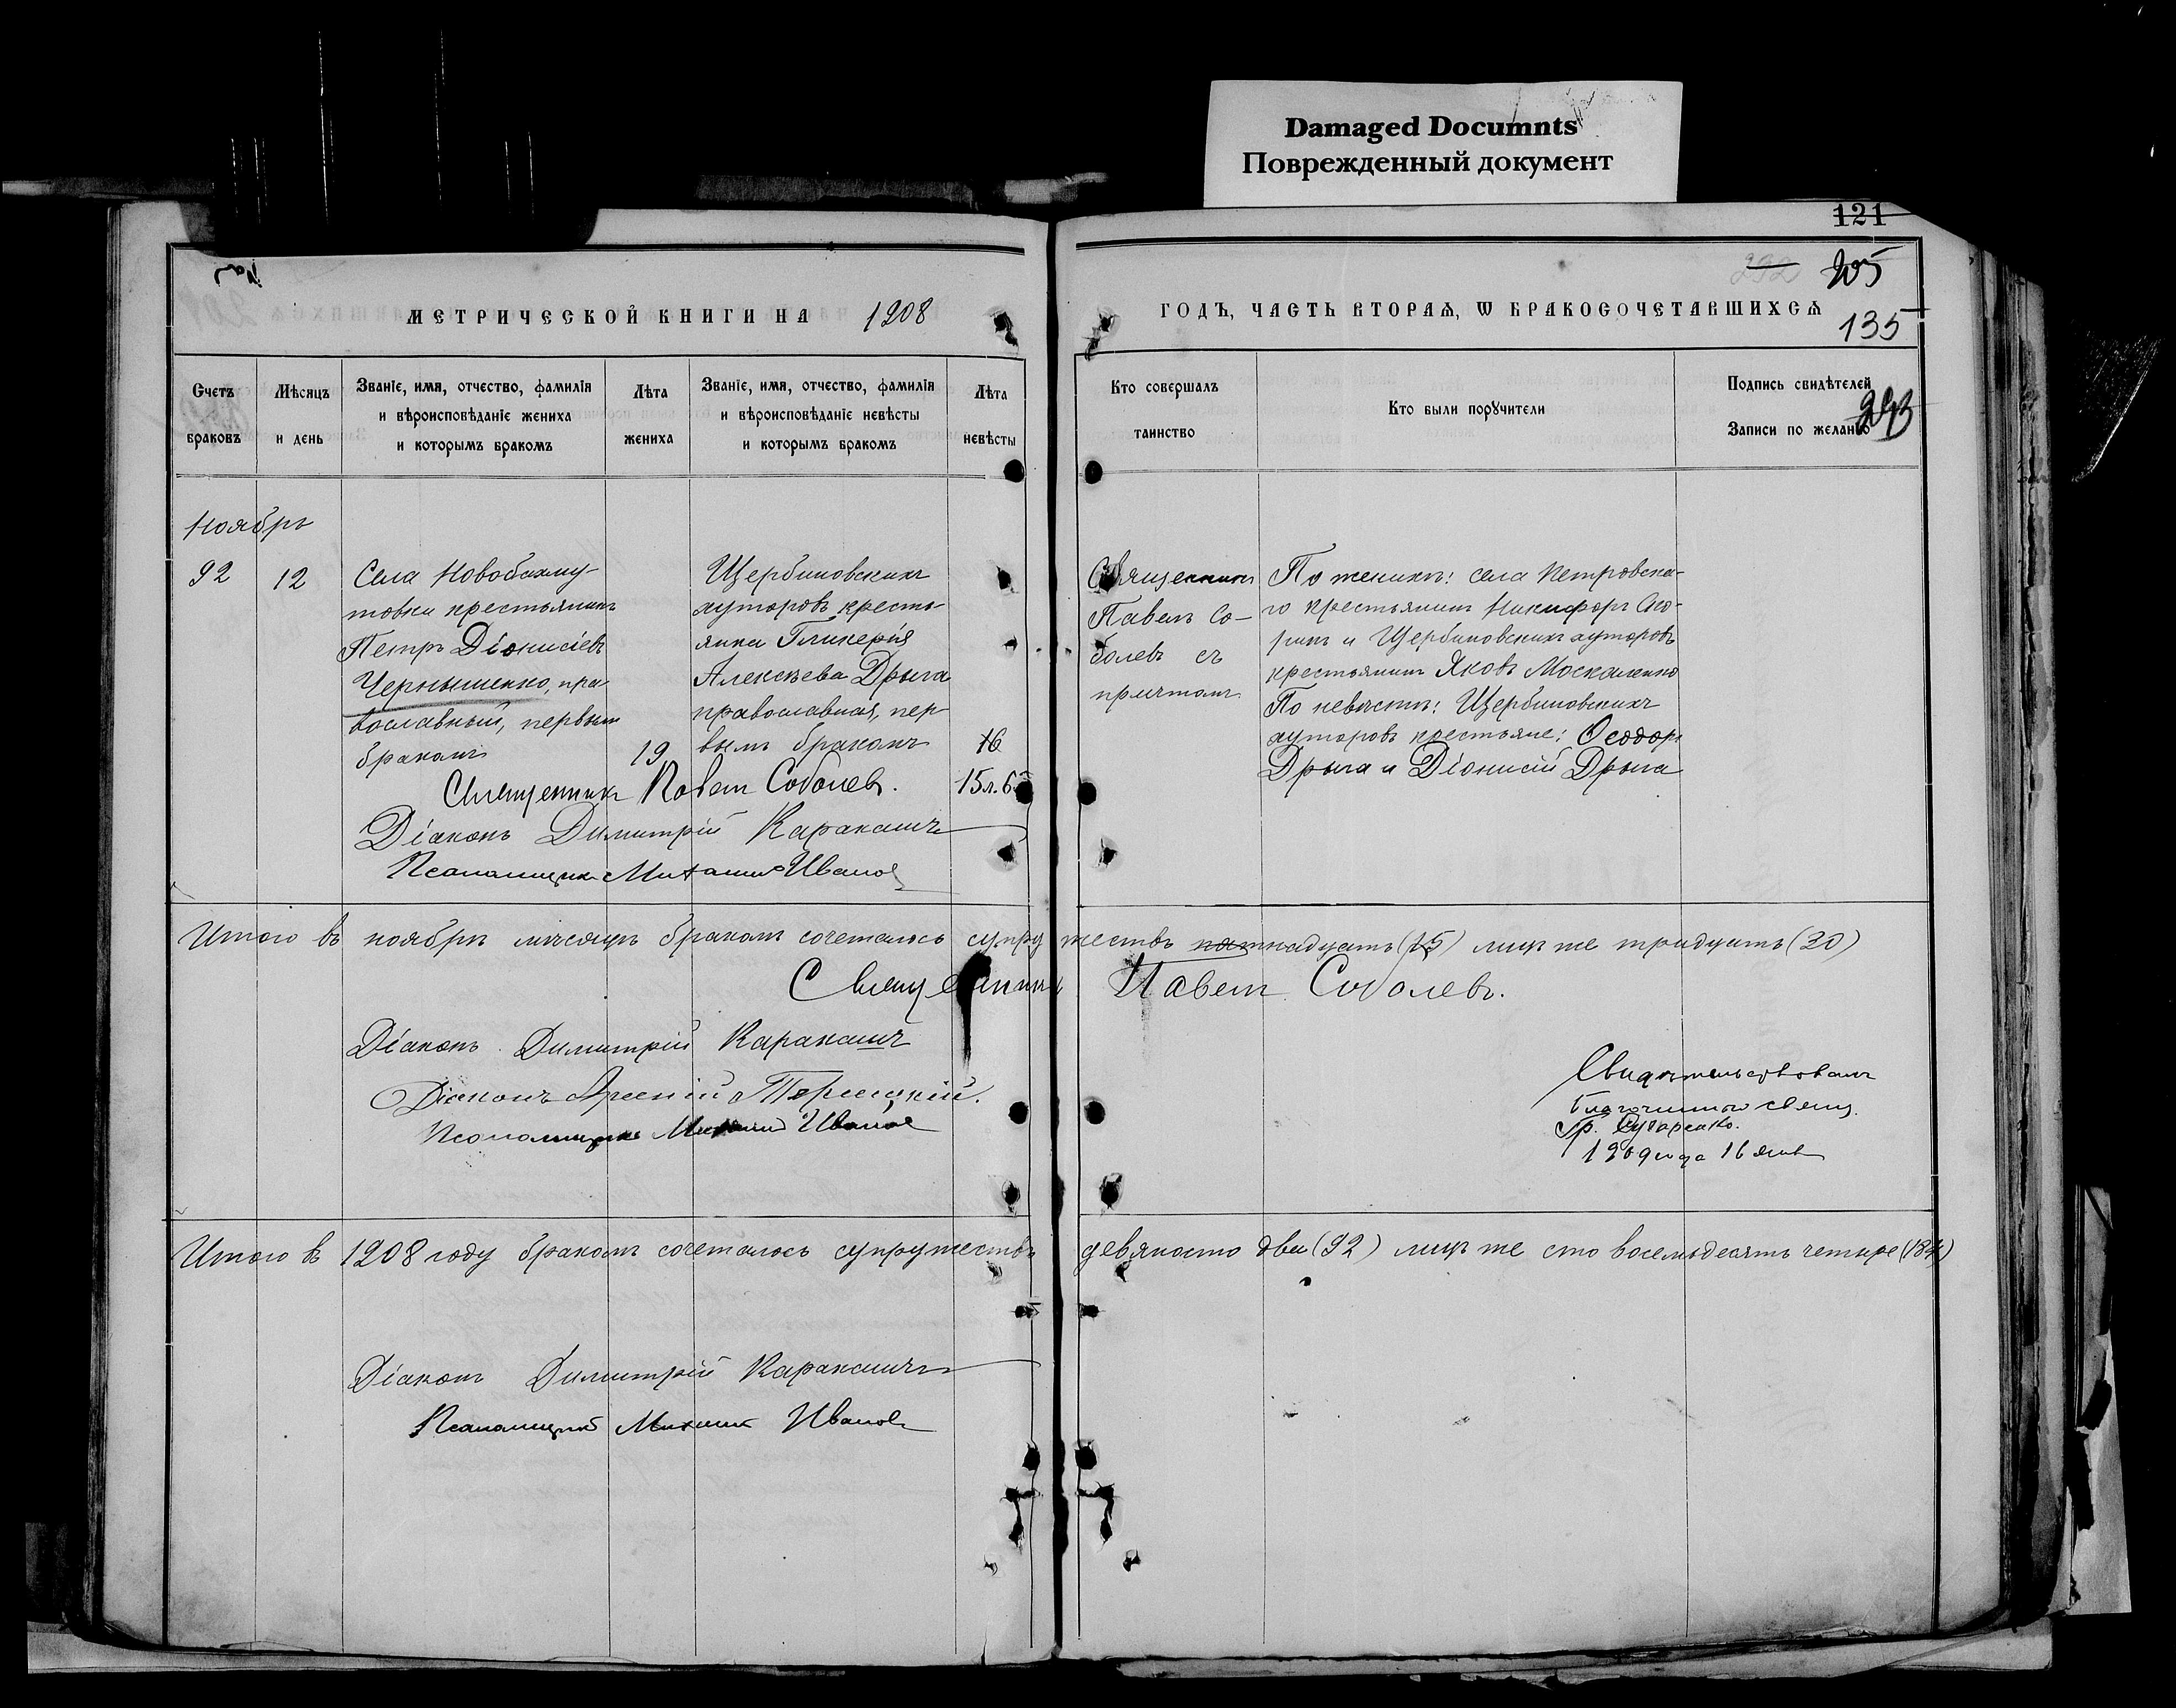 Damaged Documnts
Поврежденный документ
121
232 205
МЕТРИЧЕСКОЙ КНИГИ НА 1908
ГОДЪ, ЧАСТЬ ВТОРАЯ, Ѡ БРАКОСОЧЕТАВШИХСЯ
135
Счетъ браковъ
Мѣсяцъ и день
Званіе, имя, отчество, фамилія
и вѣроисповѣданіе жениха
и которымъ бракомъ
Лѣта жениха
Званіе, имя, отчество, фамилія
и вѣроисповѣданіе невѣсты
и которымъ бракомъ
Лѣта невѣсты
Кто совершалъ
таинство
Кто были поручители
Подпись свидѣтелей
Записи по желанію
Ноябрь
92
12
Села Новобахму-
товки крестьянинъ
Петръ Діонисіевъ
Чернышенко, пра-
вославный, первымъ
бракомъ
19
Щербиновскихъ
хуторовъ кресть-
янка Гликерія
Алексѣева Дрыга
православная, пер-
вымъ бракомъ
16
15 л. 6
Священникъ
Павелъ Со-
болевъ съ
причтомъ
По женихѣ: села Петровска-
го крестьянинъ Никифоръ
и Щербиновскихъ хуторовъ
крестьянинъ Яковъ Москаленко
По невѣстѣ: Щербиновскихъ
хуторовъ крестьяне: Ѳеодоръ
Дрыга и Діонисій Дрыга
Священникъ Павелъ Соболевъ.
Діаконъ Димитрій Каракашъ
Псаломщикъ Михаилъ Ивановъ
Итого въ ноябрѣ мѣсяцѣ бракомъ сочеталось супружествъ пятнадцать (15) лицъ же тридцать (30)
Священникъ Павелъ Соболевъ.
Діаконъ Димитрій Каракашъ
Діаконъ Арсеній
Псаломщикъ Михаилъ Ивановъ
Свидѣтельствовалъ
Благочинный свящ.
Гр.
1909 года 16 янв
Итого въ 1908 году бракомъ сочеталось супружествъ девяносто два (92) лицъ же сто восемьдесятъ четыре (184)
Діаконъ Димитрій Каракашъ
Псаломщикъ Михаилъ Ивановъ